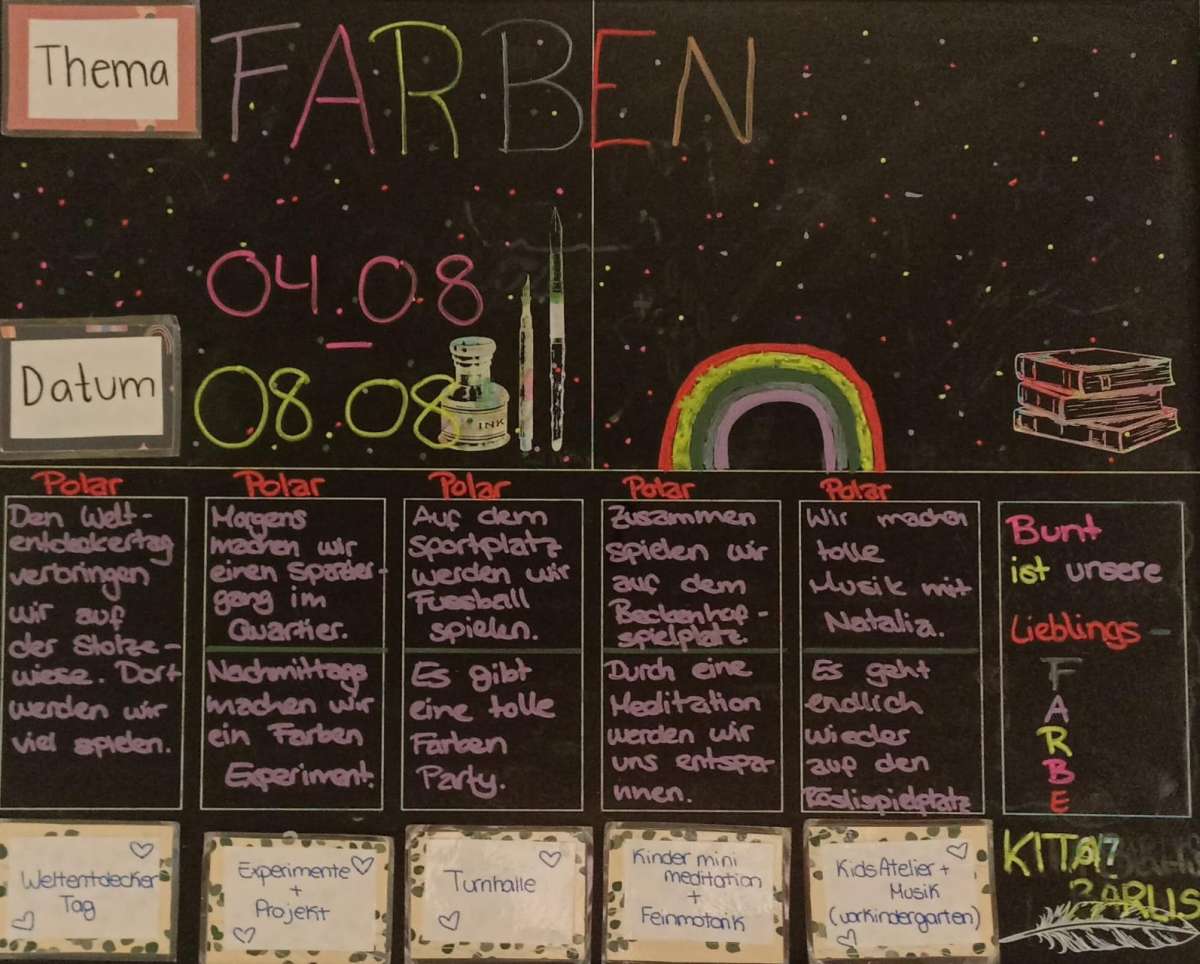 Thema
FARBEN
04.08
-
Datum
08.08
INK
Polar
Den Welt-
entdeckertag
verbringen
wir auf
der Stolze-
wiese. Dort
werden wir
viel spielen.
Weltentdecker
Tag
Polar
Morgens
machen wir
einen Spazier-
gang im
Quartier.
Nachmittags
machen wir
ein Farben
Experiment.
Experimente
+
Projekt
Polar
Auf dem
sportplatz
werden wir
Fussball
spielen.
Es gibt
eine tolle
Farben
Party.
Turnhalle
Polar
Zusammen
spielen wir
auf dem
Beckenhof-
spielplatz.
Durch eine
Meditation
werden wir
uns entspa-
nnen.
Kinder mini
meditation
+
Feinmotorik
Polar
Wir machen
tolle
Musik mit
Natalia.
Es geht
endlich
wieder
auf den
Röslispielplatz
Kids Atelier +
Musik
(vorkindergarten)
Bunt
ist unsere
Lieblings-
F
A
R
B
E
KITA